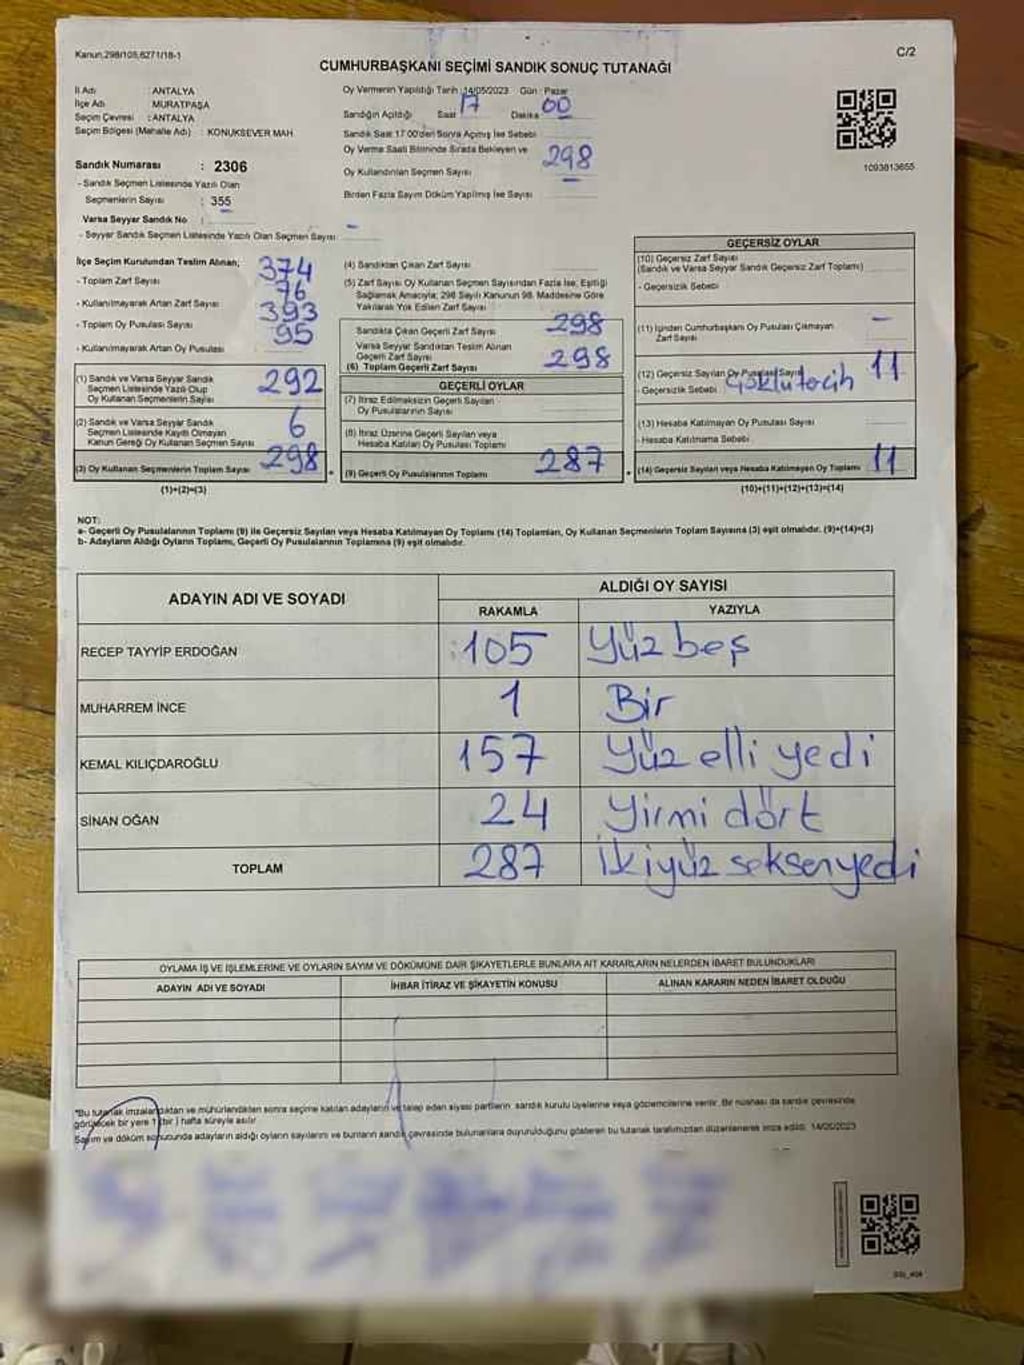 Kanun,298/105,6271/18-1
C/2
CUMHURBAŞKANI SEÇİMİ SANDIK SONUÇ TUTANAĞI
İl Adı : ANTALYA
İlçe Adı : MURATPAŞA
Seçim Çevresi : ANTALYA
Seçim Bölgesi (Mahalle Adı) : KONUKSEVER MAH.
Sandık Numarası : 2306
- Sandık Seçmen Listesinde Yazılı Olan
Seçmenlerin Sayısı : 355
Varsa Seyyar Sandık No :
- Seyyar Sandık Seçmen Listesinde Yazılı Olan Seçmen Sayısı: -
Oy Vermenin Yapıldığı Tarih :14/05/2023 Gün : Pazar
Sandığın Açıldığı Saat 17 Dakika 00
Sandık Saat 17:00'den Sonra Açılmış İse Sebebi
Oy Verme Saati Bitiminde Sırada Bekleyen ve
Oy Kullandırılan Seçmen Sayısı 298
Birden Fazla Sayım Döküm Yapılmış İse Sayısı
1093813655
İlçe Seçim Kurulundan Teslim Alınan;
- Toplam Zarf Sayısı 374
- Kullanılmayarak Artan Zarf Sayısı 76
- Toplam Oy Pusulası Sayısı 393
- Kullanılmayarak Artan Oy Pusulası 95
(1) Sandık ve Varsa Seyyar Sandık
Seçmen Listesinde Yazılı Olup
Oy Kullanan Seçmenlerin Sayısı 292
(2) Sandık ve Varsa Seyyar Sandık
Seçmen Listesinde Kayıtlı Olmayan
Kanun Gereği Oy Kullanan Seçmen Sayısı 6
(3) Oy Kullanan Seçmenlerin Toplam Sayısı 298
(1)+(2)=(3)
(4) Sandıktan Çıkan Zarf Sayısı
(5) Zarf Sayısı Oy Kullanan Seçmen Sayısından Fazla İse; Eşitliği
Sağlamak Amacıyla; 298 Sayılı Kanunun 98. Maddesine Göre
Yakılarak Yok Edilen Zarf Sayısı
Sandıkta Çıkan Geçerli Zarf Sayısı 298
Varsa Seyyar Sandıktan Teslim Alınan
Geçerli Zarf Sayısı
(6) Toplam Geçerli Zarf Sayısı 298
GEÇERLİ OYLAR
(7) İtiraz Edilmeksizin Geçerli Sayılan
Oy Pusulalarının Sayısı
(8) İtiraz Üzerine Geçerli Sayılan veya
Hesaba Katılan Oy Pusulası Toplamı
(9) Geçerli Oy Pusulalarının Toplamı 287
GEÇERSİZ OYLAR
(10) Geçersiz Zarf Sayısı
(Sandık ve Varsa Seyyar Sandık Geçersiz Zarf Toplamı)
- Geçersizlik Sebebi
(11) İçinden Cumhurbaşkanı Oy Pusulası Çıkmayan
Zarf Sayısı -
(12) Geçersiz Sayılan Oy Pusulası Sayısı 11
- Geçersizlik Sebebi
(13) Hesaba Katılmayan Oy Pusulası Sayısı
- Hesaba Katılmama Sebebi
(14) Geçersiz Sayılan veya Hesaba Katılmayan Oy Toplamı 11
(10)+(11)+(12)+(13)=(14)
NOT:
a- Geçerli Oy Pusulalarının Toplamı (9) ile Geçersiz Sayılan veya Hesaba Katılmayan Oy Toplamı (14) Toplamları, Oy Kullanan Seçmenlerin Toplam Sayısına (3) eşit olmalıdır. (9)+(14)=(3)
b- Adayların Aldığı Oyların Toplamı, Geçerli Oy Pusulalarının Toplamına (9) eşit olmalıdır.
ADAYIN ADI VE SOYADI
ALDIĞI OY SAYISI
RAKAMLA YAZIYLA
RECEP TAYYİP ERDOĞAN 105 Yüz beş
MUHARREM İNCE 1 Bir
KEMAL KILIÇDAROĞLU 157 Yüz elli yedi
SİNAN OĞAN 24 Yirmi dört
TOPLAM 287 İkiyüz seksenyedi
OYLAMA İŞ VE İŞLEMLERİNE VE OYLARIN SAYIM VE DÖKÜMÜNE DAİR ŞİKAYETLERLE BUNLARA AİT KARARLARIN NELERDEN İBARET BULUNDUKLARI
ADAYIN ADI VE SOYADI İHBAR İTİRAZ VE ŞİKAYETİN KONUSU ALINAN KARARIN NEDEN İBARET OLDUĞU
*Bu tutanak imzalandıktan ve mühürlendikten sonra seçime katılan adayların ve talep eden siyasi partilerin sandık kurulu üyelerine veya gözlemcilerine verilir. Bir nüshası da sandık çevresinde
görülecek bir yere 1 (bir ) hafta süreyle asılır
Sayım ve döküm sonucunda adayların aldığı oyların sayılarını ve bunların sandık çevresinde bulunanlara duyurulduğunu gösteren bu tutanak tarafımızdan düzenlenerek imza edildi. 14/05/2023